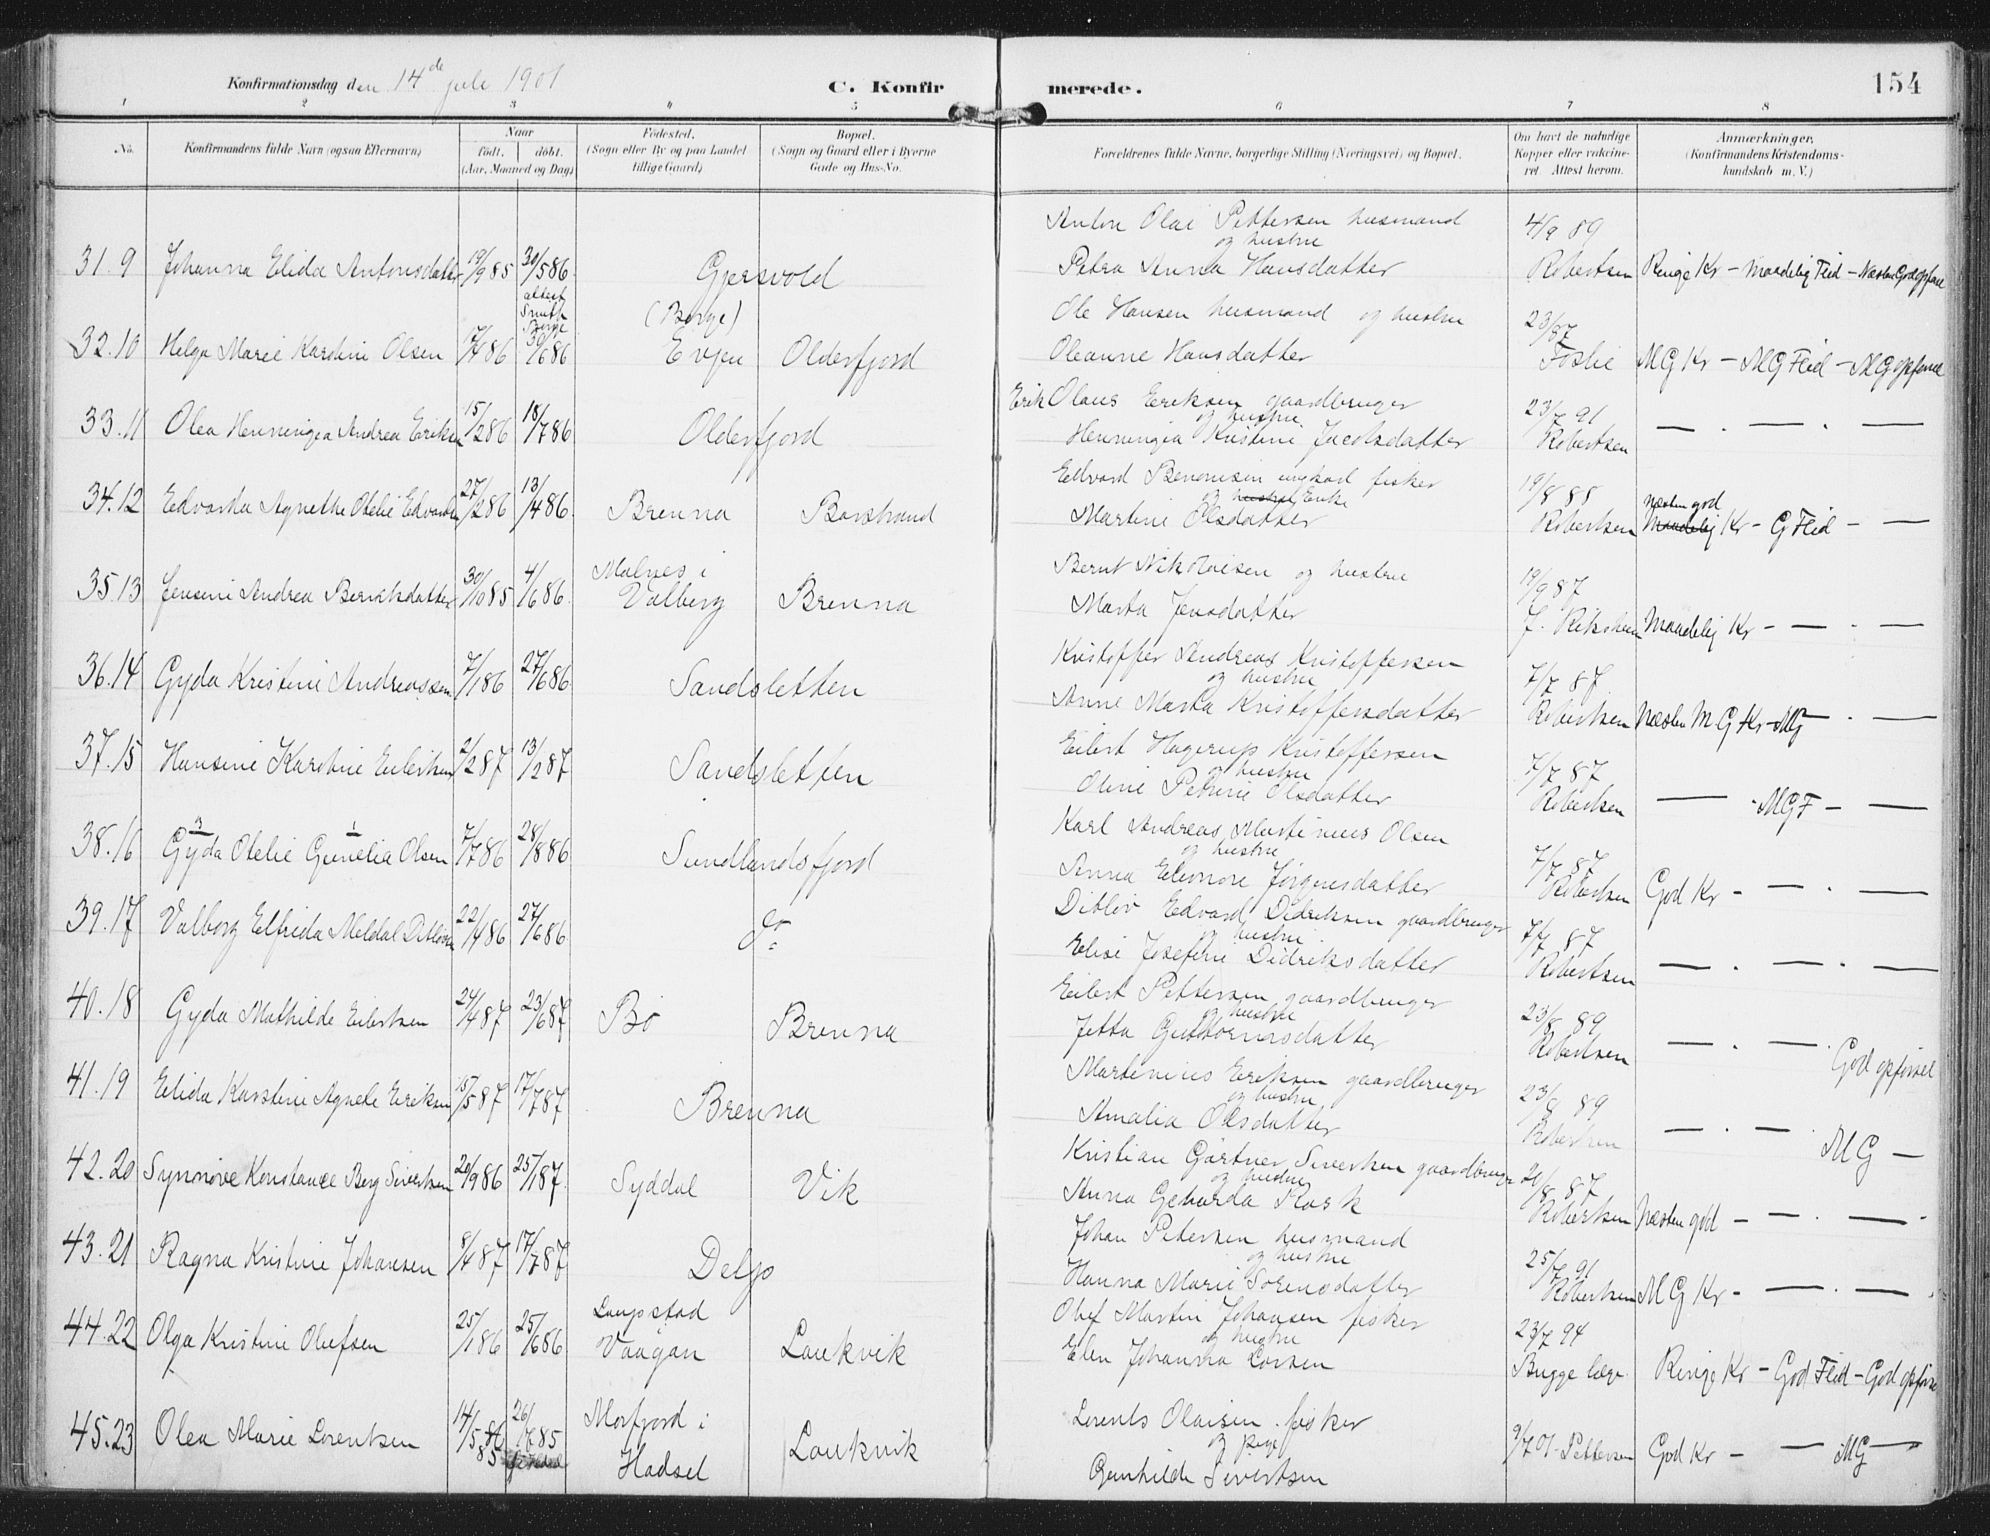 Konfirmationsdag den 14de juli 1901 C. Konfir merede. 154
1 2 3 4 5 6 7 8
No. Konfirmandens fulde Navn (ogsaa Efternavn) Naar Fødested. Bopæl. Forældrenes fulde Navne, borgerlige Stilling (Næringsvei) og Bopæl. Om havt de naturlige Anmærkninger.
født. døbt. (Sogn eller By og paa Landet (Sogn og Gaard eller i Byerne Kopper eller vakcine- (Konfirmandens Kristendoms-
(Aar, Maaned og Dag) tillige Gaard) Gade og Hus-No. ret. Attest herom. kundskab m. V.)
Anton Olai Pettersen husmand 4/9 89
og hustru
31. 9 Johanna Elida Antonsdatter 19/9 85 30/5 86 Gjersvold Petra Anna Hansdatter Robertsen Ringe Kr - Maadelig Flid - Næsten God opførsel
attest Smith Borge
(Borge) Ole Hansen husmand og hustru 23/ 87
32. 10 Helga Marie Karoline Olsen 17/4 86 30/6 86 Evjen Olderfjord Oleanne Hansdatter Foslie MG Kr - MG Flid - MG opførsel
Erik Olaus Eriksen gaardbruger 23/7 91
og hustru
33. 11 Olea Henningia Andrea Eriksen 15/2 86 18/7 86 Olderfjord Henningia Kristine Jacobsdatter Robertsen — . — . —
Edvard Benonisen ungkarl fisker 19/8 85
og hustru Enke næsten god
34. 12 Edvarda Agnethe Otelie Edvardsen 27/2 86 13/4 86 Brenna Borstrand Martine Olsdatter Robertsen Maadelig Kr - G Flid - —
Malnes i Bernt Nikolaisen og hustru 19/9 87
35. 13 Jensine Andrea Berntsdatter 30/10 85 4/6 86 Valberg Brenna Marta Jensdatter J. Riksheim Maadelig Kr - — . —
Kristoffer Andreas Kristoffersen 7/7 87
og hustru
36. 14 Gyda Kristine Andreassen 7/1 86 27/6 86 Sandsletten Anne Marta Kristoffersdatter Robertsen Næsten M G Kr - MG . —
Eilert Hagerup Kristoffersen 7/7 87
og hustru
37. 15 Hansine Karoline Eilertsen 2/2 87 13/2 87 Sandsletten Oline Petrine Olsdatter Robertsen — - MG F - —
Karl Andreas Martinus Olsen 7/7 87
og hustru
38. 16 Gyda Otelie Gunelia Olsen 7/7 86 28/8 86 Sundlandsfjord Anna Eleonore Jørgensdatter Robertsen God Kr - — . —
Ditlev Edvard Didriksen gaardbruger 7/7 87
og hustru
39. 17 Valborg Elfrida Meldal Ditlevsen 22/4 86 27/6 86 do Elise Josefine Didriksdatter Robertsen — . — . —
Eilert Pettersen gaardbruger 23/8 89
og hustru
40. 18 Gyda Mathilde Eilertsen 24/4 87 23/6 87 Bø Brenna Jetta Guttormsdatter Robertsen — . — . God opførsel
Martinius Eriksen gaardbruger 23/8 89
og hustru
41. 19 Elida Karstine Agnete Eriksen 15/5 87 17/7 87 Brenna Amalia Olsdatter Robertsen — . — . MG —
Kristian Gärtner Sivertsen gaardbruger 20/8 87
og hustru
42. 20 Synnøve Konstance Berg Sivertsen 20/9 86 25/1 87 Syddal Vik Anna Geharda Rask Robertsen Næsten god - — . — .
Johan Petersen husmand 25/7 91
og hustru
43. 21 Ragna Kristine Johansen 8/4 87 17/7 87 Delp Hanna Marie Sørensdatter Robertsen MG Kr - — . —
Laupstad Olef Martin Johansen fisker 23/7 94
og hustru
44. 22 Olga Kristine Olufsen 25/1 86 25/6 86 Vaagan Laukvik Elen Johanna Larsen Bugge læge. Ringe Kr - God Flid - God opførsel
Morfjord i Lorents Olaisen fisker
og pige
45. 23 Olea Marie Lorentsen 14/5 86 85 26/7 85 Hadsel Laukvik Gunhilde Sivertsen 9/7 01 - Pettersen God Kr - — MG —